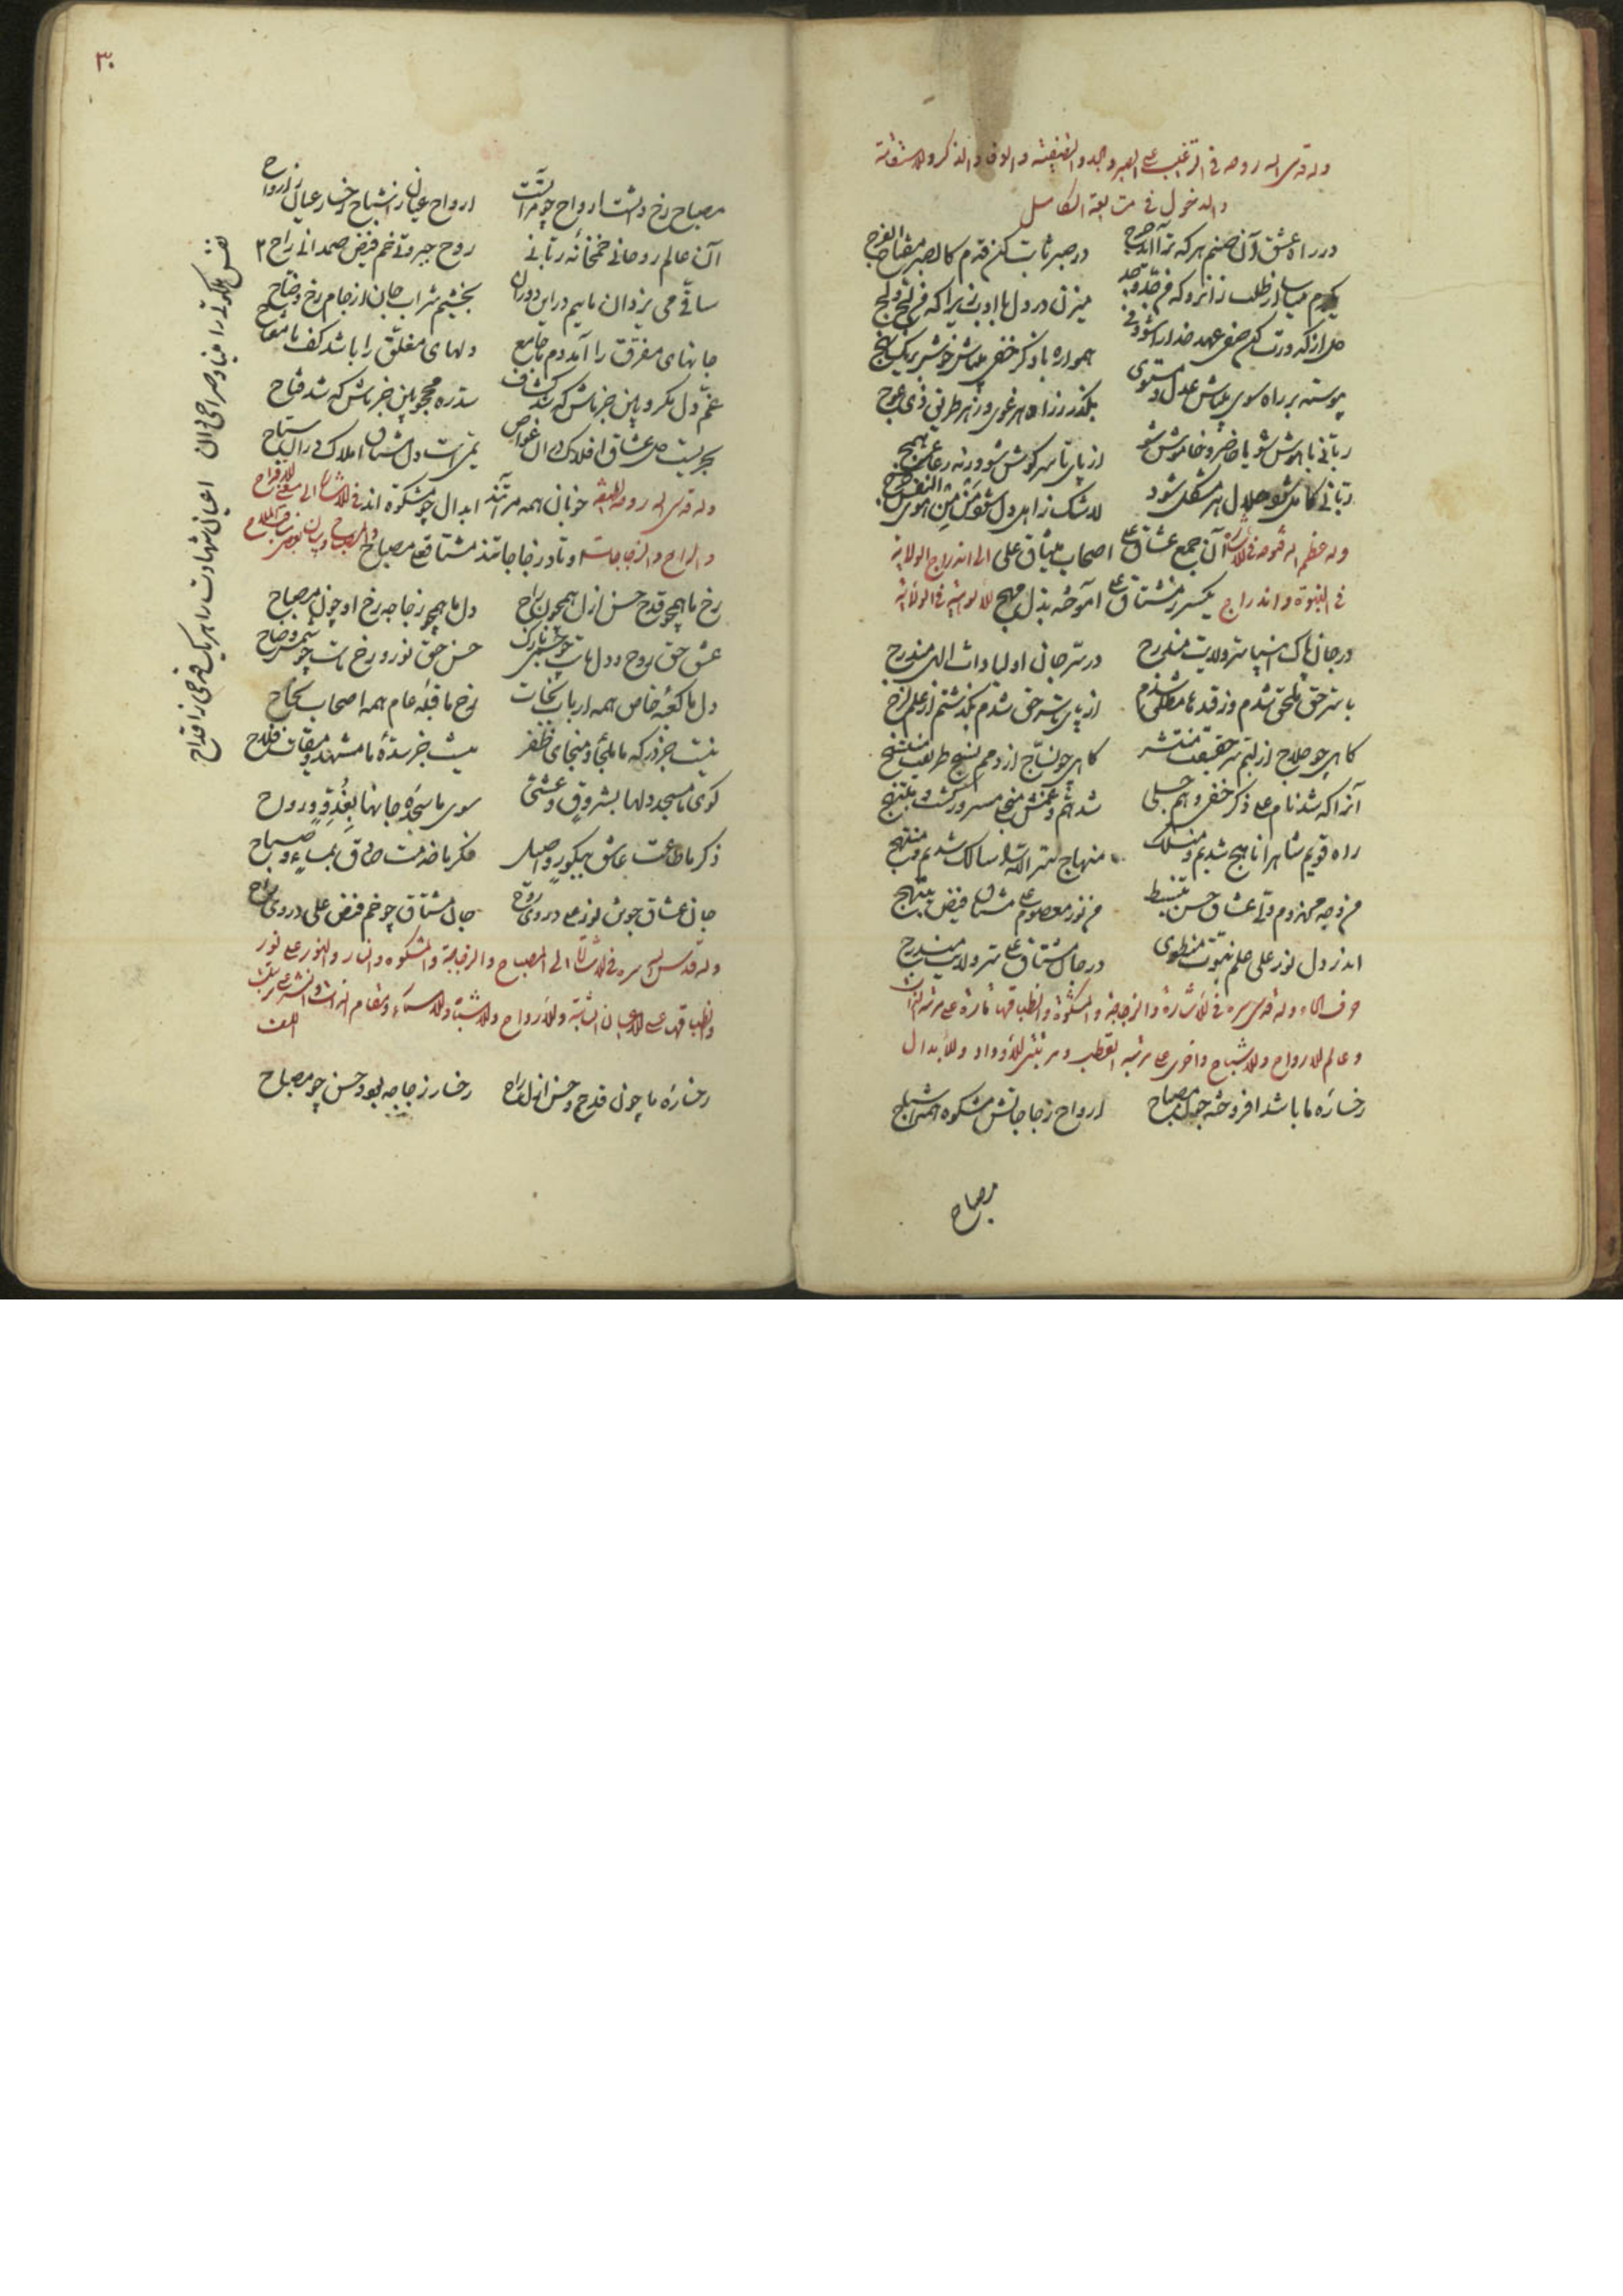 وله قدس الله روحه فی الترغیب علی الصبر والجد والتصفیة والوفا والذکر والاستقامة
والدخول فی متابعة الکامل
در راه عشق آن صنم هرکه ترا آید حرج در صبر ثابت کن قدم کالصبر مفتاح الفرج
یکدم میاسا از طلب زانرو که من جد وجد میزن در دل با ادب زیرا که من لج ولج
دل از کدورت کن صفی عهد خدا را شو وفی همواره با ذکر خفی میباش خوش بر یک نهج
پیوسته بر راه سوی میباش عدل و مستوی بگذر ز راه هر غوی وز هر طریق ذی عوج
ربانی با هوش شو یا حاضر و خاموش شو از پای تا سر گوش شو ورنه رعاعی همج
ربانی کامل شو حلال هر مشکل شو لاشک ز اهل دل شو
وله عظم الله فتوحه فی الاشارة آن جمع عشاق علی اصحاب میثاق علی الی اندراج الولایة
فی النبوة واندراج یکسر ز مشتاق علی آموخته بذل مهج الالوهیة فی الولایة
در جان پاک انبیا سر ولایت مندرج در سر جان اولیا ذات الهی مندرج
با سر حق ملحق شدم وز قدها مطلق شدم از پای تا سر حق شدم بگذشتم از علم الدرج
گاهی چو حلاج از لبم سر حقیقت منتشر گاهی چو نساج از دمم نسج طریقت منتسج
آنرا که شد نام علی ذکر خفی و هم جلی شد هم و غمش منجلی مسرور گشت و مبتهج
راه قویم شاه را ناهج شدیم و منسلک منهاج سر الله را سالک شدیم و منتهج
من وجه مهزوم قلی عشاق حسن تنبسط من نور معصوم علی مشتاق فیض تبتهج
اندر دل نور علی علم نبوت منطوی در جان مشتاق علی سر ولایت مندرج
حرف الحاء وله قدس سره فی الاشارة والزجاجة والمشکوة وانطباقها تارة علی مرتبة الذات
وعالم الارواح والاشباح واخری علی مرتبة القطب ومرتبتی الاوتاد والابدال
رخساره ما باشد افروخته چون مصباح ارواح زجاجاتش مشکوة همه اشباح
مصباح
۳۰
مصباح رخ ذاتست ارواح چو مرآتست ارواح عیان ز اشباح رخسار عیان ز ارواح
آن عالم روحانی خمخانه ربانی روح جبروتی خم فیض صمدانی راح
ساقی می یزدان ماییم در این دوران بخشیم شراب جان از جام رخ وضاح
جانهای مفرق را آمد دم ما جامع دلهای مغلق را باشد کف ما مفتاح
غم دل مکروبین خنجر باش که شد کشاف سدره محجوبین خنجر باش که شد فتاح
بحریست دل عشاق افلاک در آن غواص یمی است دل مشتاق املاک در آن سباح
وله قدس الله روحه اللطیفة خوبان همه مرآتند ابدال چو مشکوة اند فی الاشارة الی معنی الاقداح
والراح والزجاجات اوتاد زجاجاتند مشتاقعلی مصباح
رخ ما همچو قدح حسن ازل همچون راح دل ما همچو زجاجه رخ او چون مصباح
عشق حق روح و دل ماست حسن حق نور و رخ ماست چو شمس وضاح
دل ما کعبه خاص همه ارباب نجات رخ ما قبله عام همه اصحاب نجاح
نیست جز درگه ما ملجأ و منجای ظفر نیست جز سده ما مشهد و میقات فلاح
کوی ما مسجد دلها بشروق و عشی سوی ما سجده جانها بغدو و رواح
ذکر ما طاعت عاشق ببکور و اصیل فکر ما خدمت صادق بمساء و صباح
جان عشاق چون نور علی در وی روح جان مشتاق چو خم فیض علی در وی راح
وله قدس الله سره فی الاشارة الی المصباح والزجاجة والمشکوة والنار والنور علی نور
وانطباقها علی الاعیان الثابتة والارواح والاشباح والاسماء ومقام الذات
رخساره ما چون قدح و حسن ازل راح رخسار زجاجه بود و حسن چو مصباح
نفس ملکوتی را مینا و صراحی دان اعیان شهادت را هر یک قدحی ز اقداح